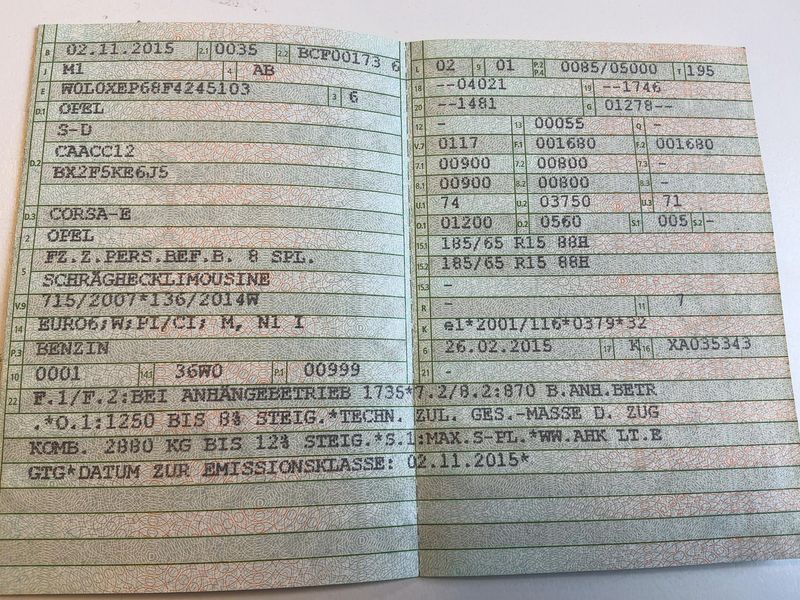 B 02.11.2015 2.1 0035 2.2 BCF00173 6
J M1 4 AB
E W0L0XEP68F4245103 3 6
D.1 OPEL
S-D
D.2 CAACC12
BX2F5KE6J5
D.3 CORSA-E
2 OPEL
5 FZ.Z.PERS.BEF.B. 8 SPL.
SCHRÄGHECKLIMOUSINE
V.9 715/2007*136/2014W
14 EURO6;W;PI/CI; M, N1 I
P.3 BENZIN
10 0001 14.1 36W0 P.1 00999
L 02 9 01 P.2 P.4 0085/05000 T 195
18 --04021 19 --1746
20 --1481 G 01278--
12 - 13 00055 Q -
V.7 0117 F.1 001680 F.2 001680
7.1 00900 7.2 00800 7.3 -
8.1 00900 8.2 00800 8.3 -
U.1 74 U.2 03750 U.3 71
O.1 01200 O.2 0560 S.1 005 S.2 -
15.1 185/65 R15 88H
15.2 185/65 R15 88H
15.3 -
R - 11 7
K e1*2001/116*0379*32
6 26.02.2015 17 K 16 XA035343
21 -
22 F.1/F.2:BEI ANHÄNGEBETRIEB 1735*7.2/8.2:870 B.ANH.BETR
.*O.1:1250 BIS 8% STEIG.*TECHN. ZUL. GES.-MASSE D. ZUG
KOMB. 2880 KG BIS 12% STEIG.*S.1:MAX.S-PL.*WW.AHK LT.E
GTG*DATUM ZUR EMISSIONSKLASSE: 02.11.2015*